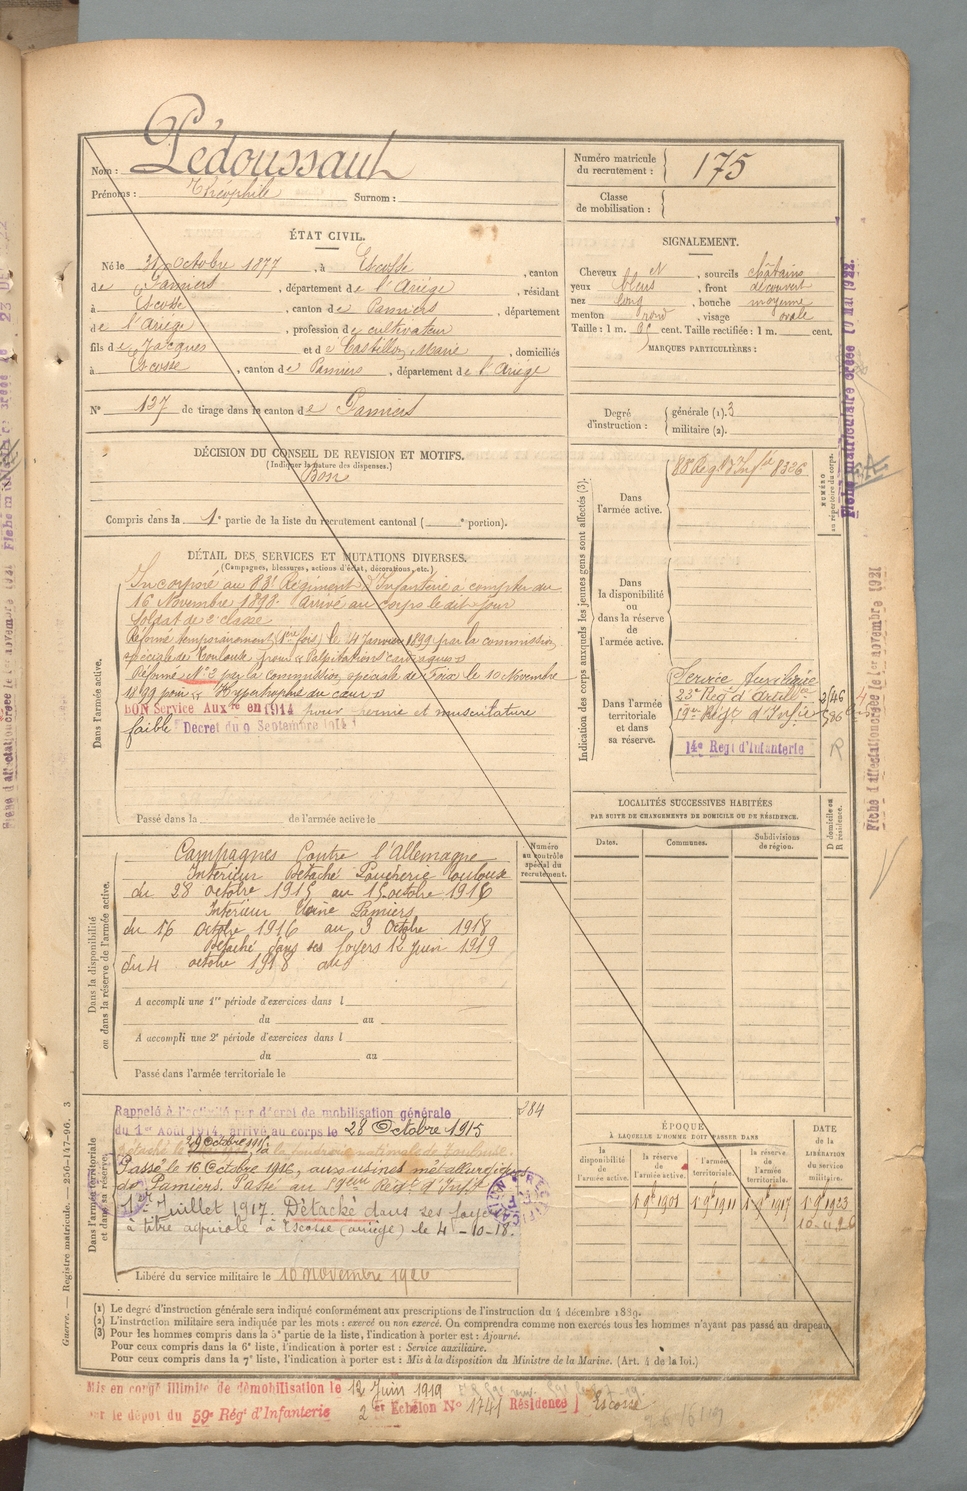 Nom : Pédoussaut
Prénoms : Théophile Surnom :
Numéro matricule du recrutement : 175
Classe de mobilisation :
ÉTAT CIVIL.
Né le octobre 1877, à Escosse, canton
de Pamiers, département de l'Ariège, résidant
à Escosse, canton de Pamiers, département
de l'Ariège, profession de cultivateur
fils de Jacques et de Castillon Marie, domiciliés
à Escosse, canton de Pamiers, département de l'Ariège
N° 137 de tirage dans le canton de Pamiers
SIGNALEMENT.
Cheveux , sourcils châtains
yeux bleus, front découvert
nez long, bouche moyenne
menton rond, visage ovale
Taille : 1 m. cent. Taille rectifiée : 1 m. cent.
MARQUES PARTICULIÈRES :
Degré d'instruction : générale (1). 3
militaire (2).
DÉCISION DU CONSEIL DE REVISION ET MOTIFS.
(Indiquer la nature des dispenses.)
Bon
Compris dans la 1e partie de la liste du recrutement cantonal ( e portion).
DÉTAIL DES SERVICES ET MUTATIONS DIVERSES.
(Campagnes, blessures, actions d'éclat, décorations, etc.)
Dans l'armée active.
Incorporé au 88e Régiment d'Infanterie à compter du
16 Novembre 1898. Arrivé au corps le dit jour
Soldat de 2e classe
Réformé temporairement (1ère fois) le 4 Janvier 1899 par la commission
spéciale de Toulouse pour "Palpitations cardiaques"
Réformé N° 2 par la commission spéciale de Foix le 10 Novembre
1899 pour "Hypertrophie du cœur"
BON Service Auxre en 1914 pour hernie et musculature
faible Décret du 9 Septembre 1914
Passé dans la de l'armée active le
Indication des corps auxquels les jeunes gens sont affectés (3).
NUMÉRO au répertoire du corps.
Dans l'armée active.
88 Régt d'Infie 8326
Dans la disponibilité ou dans la réserve de l'armée active.
Dans l'armée territoriale et dans sa réserve.
Service Auxiliaire
23e Régt d'Artillie
Régt d'Infie
14e Regt d'Infanterie
R
Dans la disponibilité ou dans la réserve de l'armée active.
Campagnes Contre l'Allemagne
Intérieur Détaché Poudrerie Toulouse
du 28 octobre 1915 au 15 octobre 1916
Intérieur Usine Pamiers
du 16 octobre 1916 au 3 Octobre 1918
Détaché dans ses foyers 12 Juin 1919
du 4 octobre 1918 au
Numéro au contrôle spécial du recrutement.
A accompli une 1re période d'exercices dans l
du au
A accompli une 2e période d'exercices dans l
du au
Passé dans l'armée territoriale le
LOCALITÉS SUCCESSIVES HABITÉES
PAR SUITE DE CHANGEMENTS DE DOMICILE OU DE RÉSIDENCE.
Dates. Communes. Subdivisions de région. D domicile ou R résidence.
Dans l'armée territoriale et dans sa réserve.
Rappelé à l'activité par décret de mobilisation générale
du 1er Août 1914, arrivé au corps le 28 Octobre 1915
Passé le 16 Octobre 1916, aux usines métallurgiques
de Pamiers. Passé au 59ème Régt d'Inft
1er Juillet 1917. Détaché dans ses foyers
à titre agricole à Escosse (Ariège) le 4-10-18.
384
Libéré du service militaire le 10 novembre 1926
ÉPOQUE
À LAQUELLE L'HOMME DOIT PASSER DANS
la disponibilité de l'armée active. la réserve de l'armée active. l'armée territoriale. la réserve de l'armée territoriale.
DATE de la LIBÉRATION du service militaire.
1 9 1901 1 9 1911 1 9 1917 1 9 1923
(1) Le degré d'instruction générale sera indiqué conformément aux prescriptions de l'instruction du 4 décembre 1889.
(2) L'instruction militaire sera indiquée par les mots : exercé ou non exercé. On comprendra comme non exercés tous les hommes n'ayant pas passé au drapeau.
(3) Pour les hommes compris dans la 5e partie de la liste, l'indication à porter est : Ajourné.
Pour ceux compris dans la 6e liste, l'indication à porter est : Service auxiliaire.
Pour ceux compris dans la 7e liste, l'indication à porter est : Mis à la disposition du Ministre de la Marine. (Art. 4 de la loi.)
Mis en congé illimité de démobilisation le 12 Juin 1919
par le dépôt du 59e Régt d'Infanterie 2 er Echelon N° 1741 Résidence Escosse
Guerre. — Registre matricule. — 256-147-96. 3
Fiche matriculaire créée 10 MAI 1922.
Fiche d'affectation créée le 1er novembre 1921